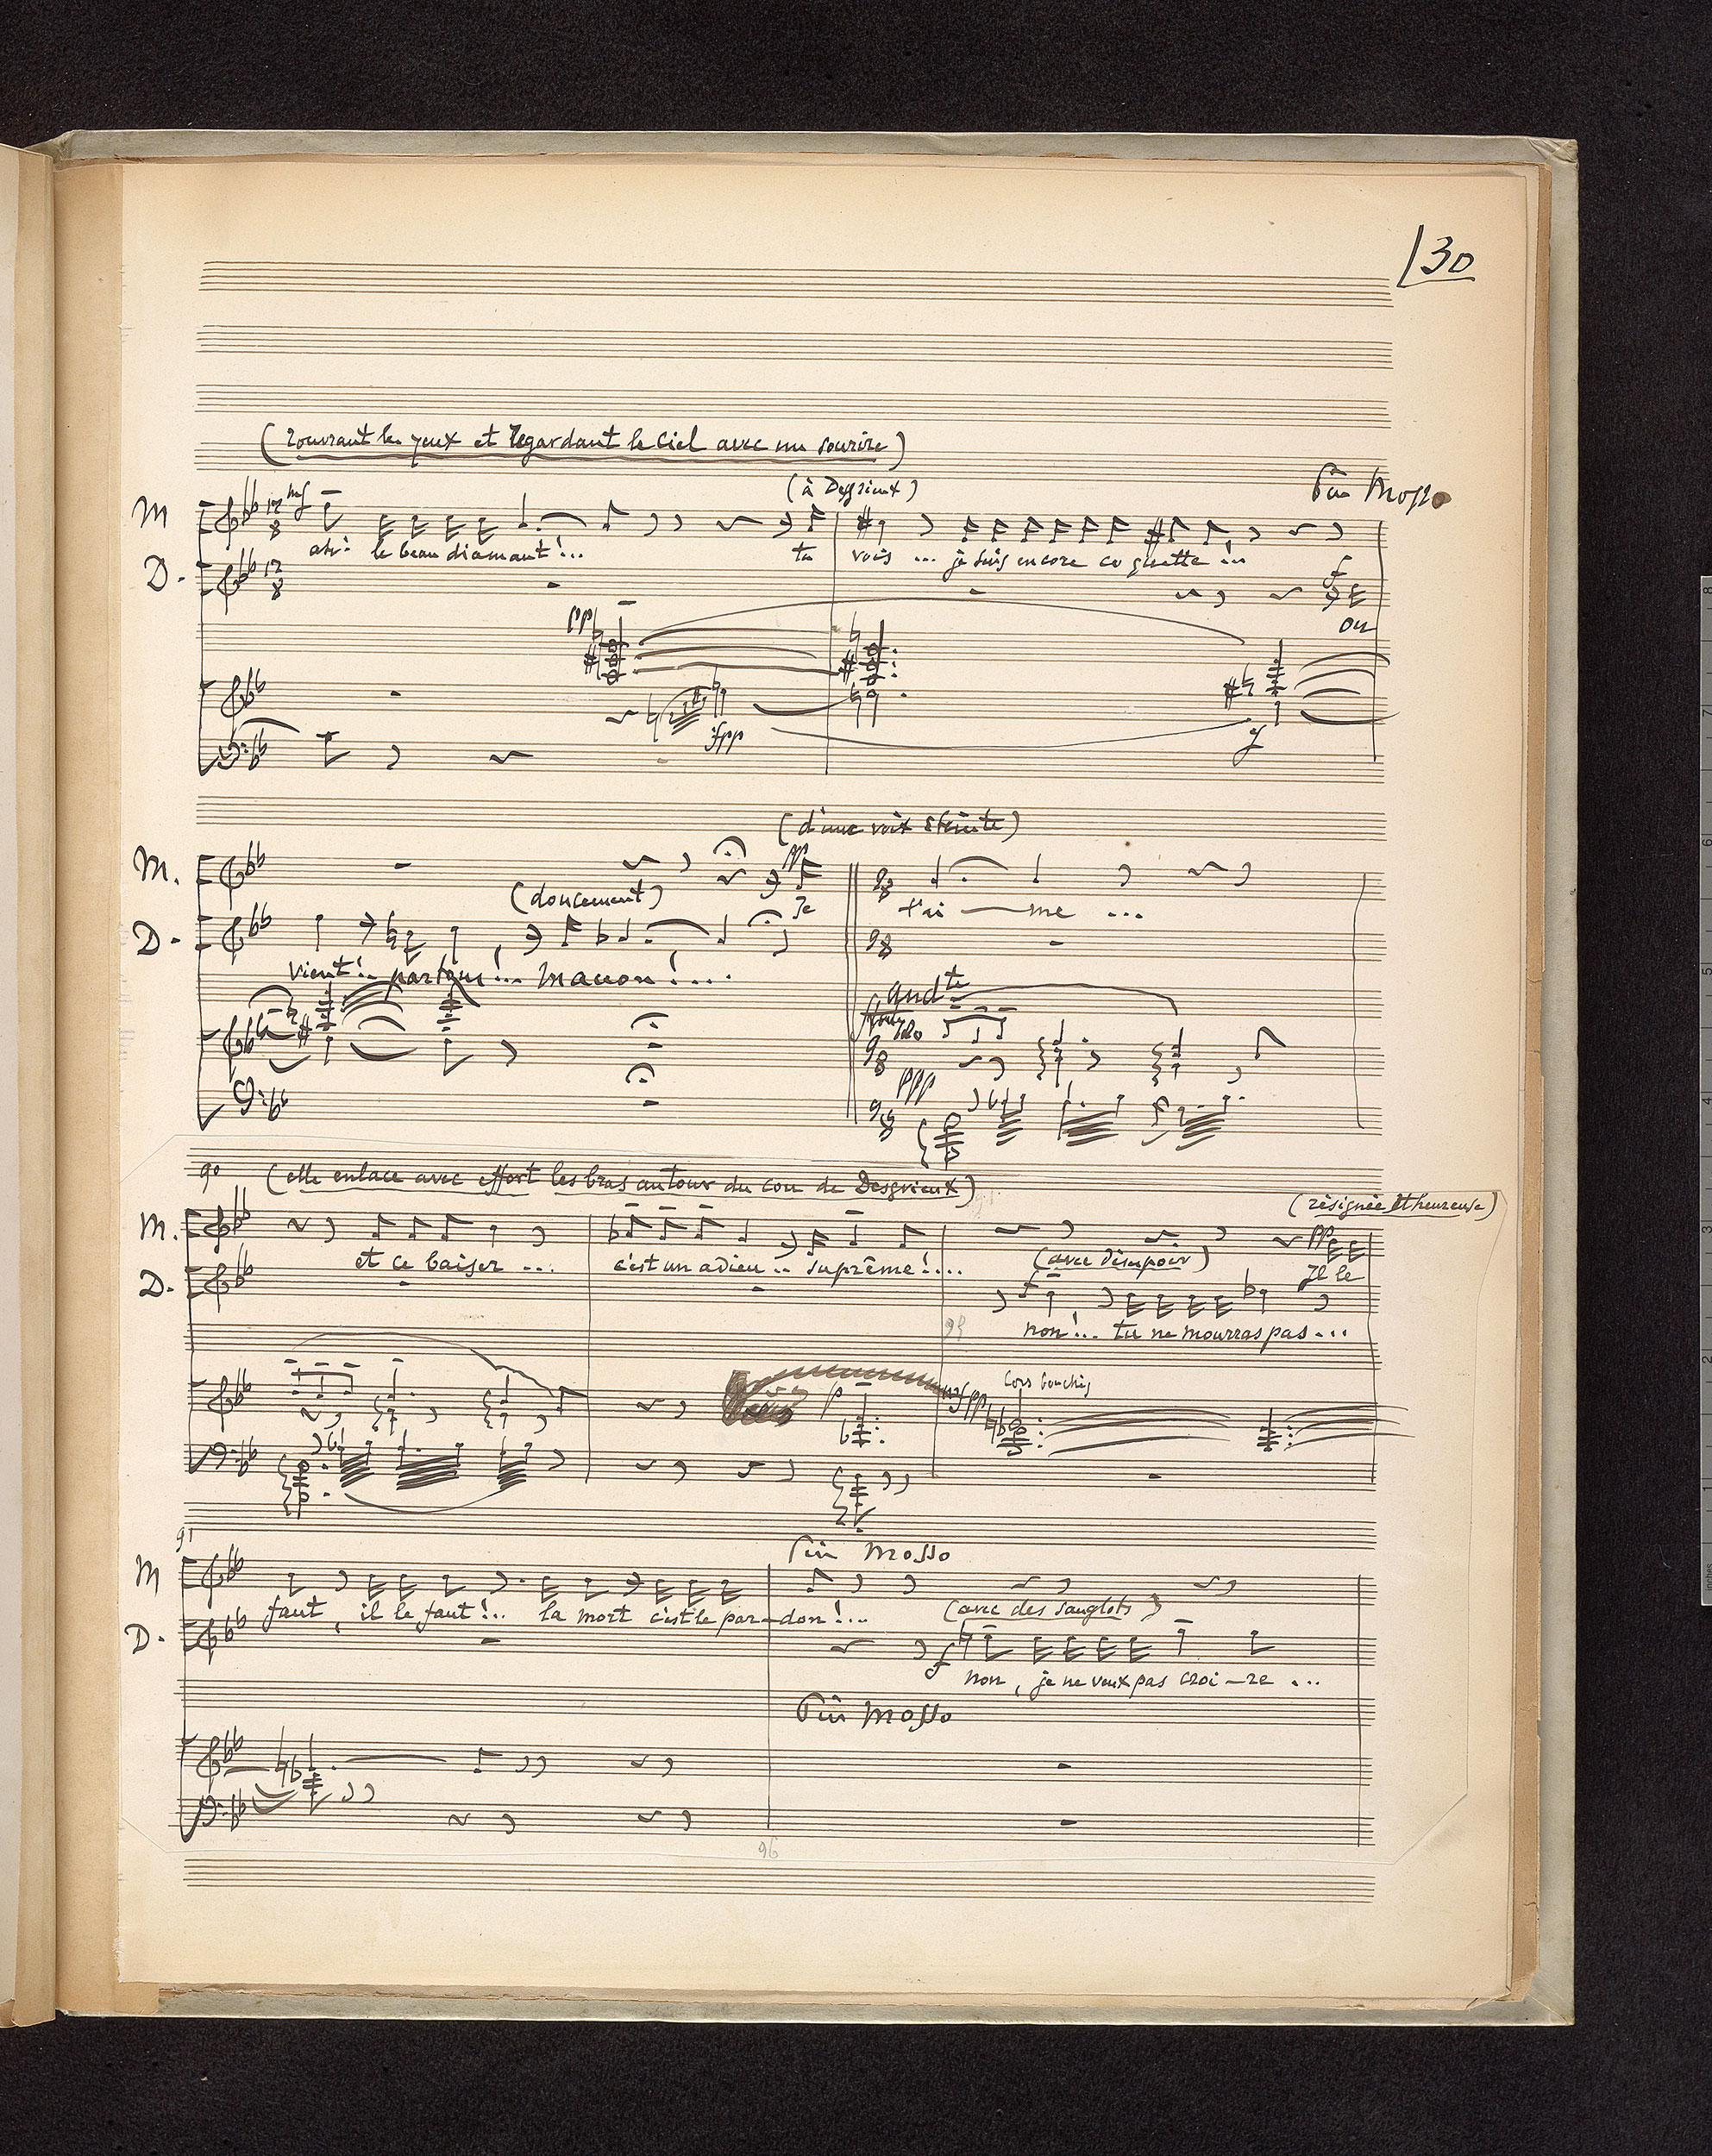 130
(rouvrant les yeux et regardant le ciel avec un sourire)
(à Desgrieux)
Più mosso
M
mf
12
8
ah! le beau diamant!... tu vois ... je suis encore coquette!...
D.
12
8
f
on
pp
fpp
f
(d'une voix éteinte)
M.
pp
9
8
Je t'ai — me ...
(doucement)
D.
9
8
vient!.. partons!... Manon!...
And te
flute
solo
9
8
ppp
9
8
90
(elle enlace avec effort les bras autour du cou de Desgrieux)
(résignée et heureuse)
M.
pp
et ce baiser ... c'est un adieu .. suprême!.... Il le
(avec désespoir)
D.
f
non!.. tu ne mourras pas ...
95
p
sfpp
Cors bouchés
91
Più mosso
M
faut, il le faut!.. la mort c'est le par-don!...
(avec des sanglots)
D.
f
non, je ne veux pas croi-re ...
Più mosso
96